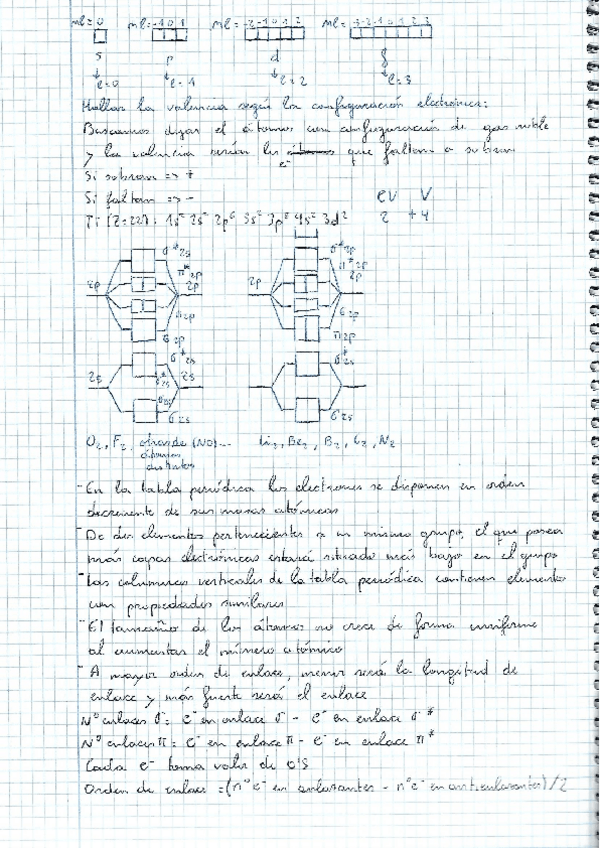 ml=0 ml=-1 0 1 ml=-2 -1 0 1 2 ml=-3 -2 -1 0 1 2 3
s p d f
l=0 l=1 l=2 l=3
Hallar la valencia según la configuración electrónica:
Buscamos dejar el átomo con configuración de gas noble
y la valencia serían los e⁻ que faltan o sobran
Si sobran => +
Si faltan => - eV V
Ti (Z=22): 1s² 2s² 2p⁶ 3s² 3p⁶ 4s² 3d² 2 +4
σ*2s σ*2p
π*2p π*2p
2p 2p 2p 2p
π2p σ2p
σ2p π2p
σ*2s σ*2s
2s 2s
σ2s σ2s
O₂, F₂, (NO)... Li₂, Be₂, B₂, C₂, N₂
átomos
distintos
- En la tabla periódica los electrones se disponen en orden
decreciente de sus masas atómicas
- De dos elementos pertenecientes a un mismo grupo, el que posea
más capas electrónicas estará situado más bajo en el grupo
- Las columnas verticales de la tabla periódica contienen elementos
con propiedades similares
- El tamaño de los átomos no crece de forma uniforme
al aumentar el número atómico
- A mayor orden de enlace, menor será la longitud de
enlace y más fuerte será el enlace
Nº enlaces σ = e⁻ en enlace σ - e⁻ en enlace σ*
Nº enlaces π = e⁻ en enlace π - e⁻ en enlace π*
Cada e⁻ toma valor de 0'5
Orden de enlace = (nº e⁻ en enlazantes - nº e⁻ en antienlazantes)/2